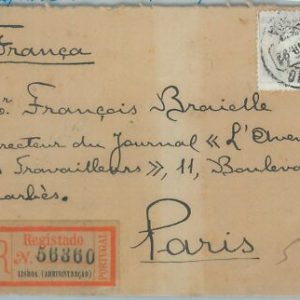 França
r. François Braielle
recteur du Journal « L'Aven
s Travailleurs », 11, Bouleva
arbès.
Paris
R
Registado
N. 56360
LISBOA (ADMINISTRAÇÃO)
PORTUGAL